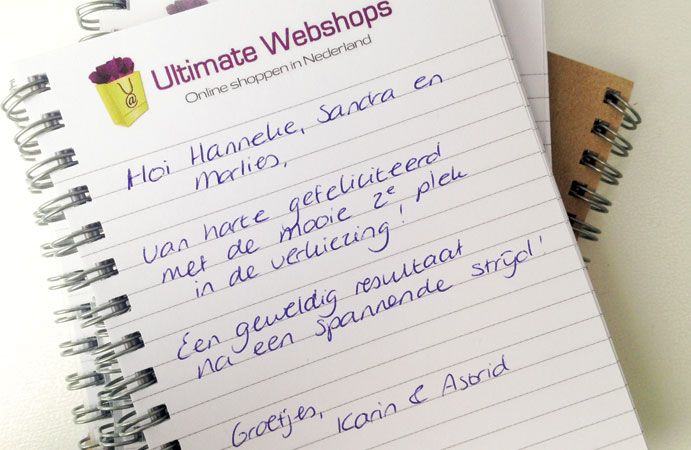 Ultimate Webshops
Online shoppen in Nederland
Hoi Hanneke, Sandra en
Marlies,
van harte gefeliciteerd
met de mooie 2e plek
in de verkiezing!
Een geweldig resultaat
na een spannende strijd!
Groetjes,
Karin & Astrid